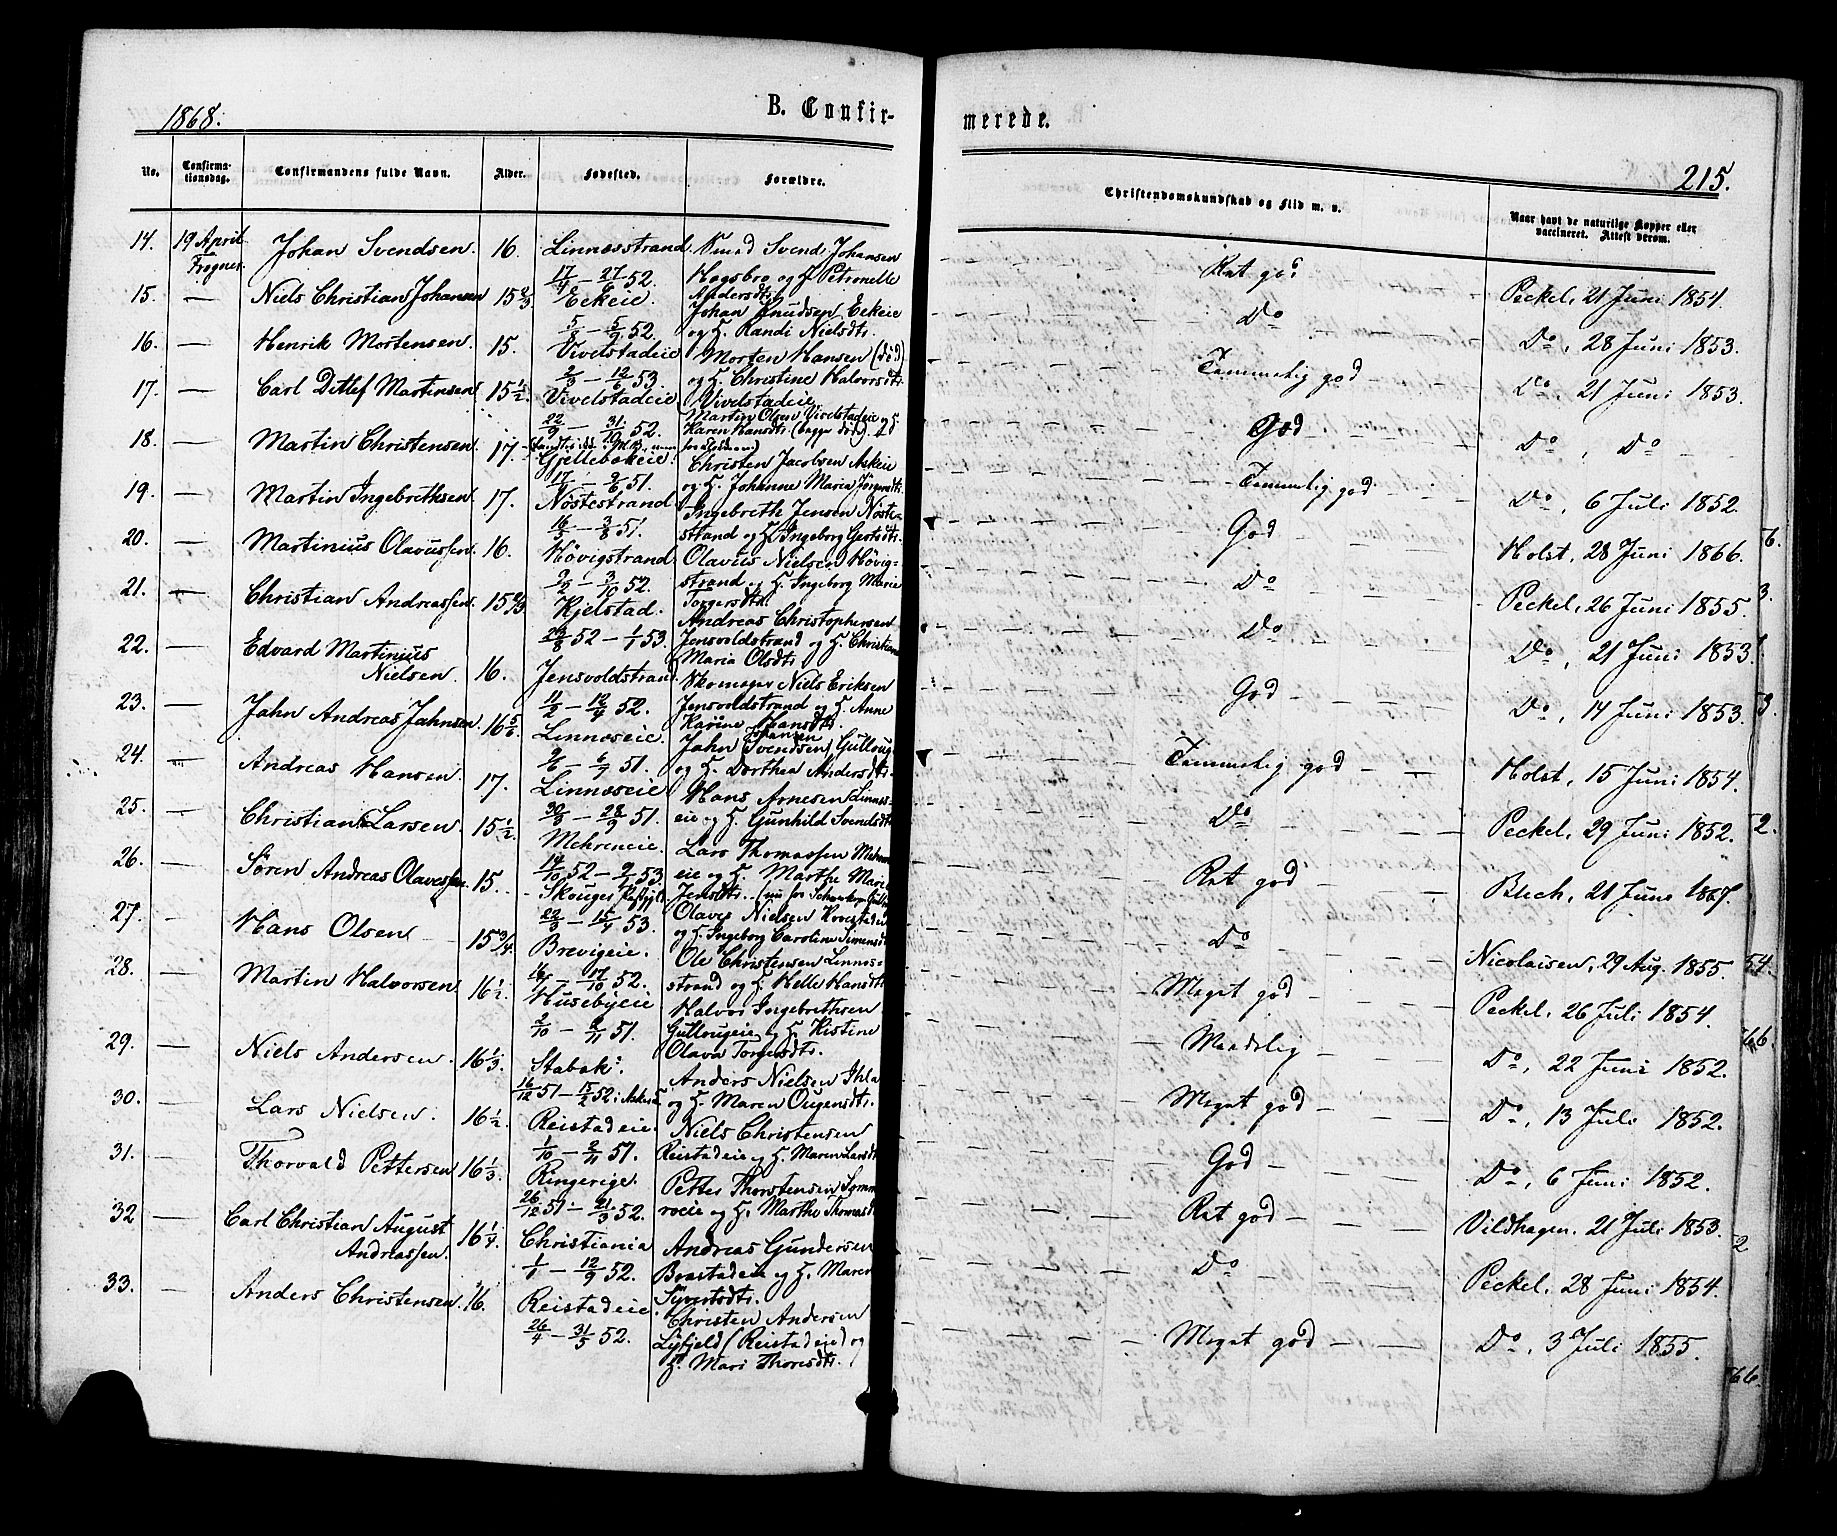 1868.
B. Confir-
merede.
215.
No.
Confirma-
tionsdag.
Confirmandens fulde Navn.
Alder.
Fødested.
Forældre.
Christendomskundskab og Flid m. v.
Naar havt de naturlige Kopper eller
vaccineret. Attest derom.
14. 19 April Johan Svendsen. 16. Linnæsstrand Svend Johansen
Frogner. 17/4 – 27/6 52. Hagsbro og H. Petronelle
Andersdtr.
Peckel, 21 Juni 1854.
15. — Niels Christian Johansen 15 2/3 Eekeie. Johan Knudsen Eekeie
5/7 – 5/9 52. og H. Randi Nielsdtr.
Do
Do, 28 Juni 1853.
16. — Henrik Mortensen. 15. Vivelstadeie Morten Hansen (død)
2/3 – 12/6 53. og H. Christine Halvorsdtr.
Vivelstadeie.
Temmelig god — — Do, 21 Juni 1853.
17. — Carl Detlef Martinsen 15 1/2. Vivelstadeie Martin Olsen Vivelstadeie og
22/9 – 31/10 52. Karen Hansdtr. (begge død)
God — — — Do, Do —
18. — Martin Christensen. 17. Gjellebækeie. Christen Jacobsen Askeie
og H. Johanne Maria Jørgensdtr.
- Temmelig god — — Do, 6 Juli 1852.
19. — Martin Ingebrethsen 17. Nöstestrand Ingebreth Jensen Nöste-
16/5 – 3/8 51. strand og H. Ingeborg Gertsdtr.
God — — — Holst, 28 Juni 1866.
20. — Martinius Olavussen. 16. Hövigstrand Olavus Nielsen Hövig-
strand og H. Ingeborg Marie
Torgersdtr.
Do — — — Peckel, 26 Juni 1855.
21. — Christian Andreassen. 15 2/3 Kjelstad. Andreas Christophersen
29/8 52 – 1/1 53. Jensvoldstrand og H. Christiane
Maria Olsdtr.
Do — — — Do, 21 Juni 1853.
22. — Edvard Martinius
Nielsen. 16. Jensvoldstrand Skomager Niels Eriksen
11/2 – 12/4 52. Jensvoldstrand og H. Anne
Karine Hansdtr.
God — — — Do, 14 Juni 1853.
23. — Jahn Andreas Jahnsen. 16 5/6 Linnæseie. Jahn Svendsen Johansen Gullaug-
og H. Dorthea Andersdtr.
Temmelig god — — Holst, 15 Juni 1854.
24. — Andreas Hansen. 17. Linnæseie Hans Arnesen Linnes-
30/8 – 28/9 51. eie og H. Gunhild Svendsdtr.
Do — — — Peckel, 29 Juni 1852.
25. — Christian Larsen. 15 1/2. Mehreneie. Lars Thomassen
eie og H. Marthe Marie
Jensdtr.
Rat god — — Blech, 21 Juni 1867.
26. — Søren Andreas Olavessen. 15. Skouger Prstgjld. Olaves Nielsen
22/3 – 15/4 53. og H. Ingeborg Caroline Simensdtr.
Do — — — Nicolaisen, 29 Aug. 1855.
27. — Hans Olsen — 15 3/4. Brevigeie. Ole Christensen Linnes-
strand og H. Helle Hansdtr.
Meget god — — Peckel, 26 Juli 1854.
28. — Martin Halvorsen. 16 1/2. Husebyeie Halvor Ingebrethsen
2/10 – 2/11 51. Gullaugeie og H. Kistine
Olava Torgersdtr.
Maadelig — — Do, 22 Juni 1852.
29. — Niels Andersen. 16 1/3. Stabæk. Anders Nielsen Ihle
16/12 51 – 15/2 52 i Asker. og H. Maren Ougensdtr.
Meget god — — Do, 13 Juli 1852.
30. — Lars Nielsen. 16 1/2. Reistadeie. Niels Christensen
1/10 – 2/11 51. Reistadeie og H. Maren Larsdtr.
God — — — Do, 6 Juni 1852.
31. — Thorvald Pettersen 16 1/3. Ringerige. Petter Thorstensen
26/12 51 – 21/3 52. og H. Marthe Thomasdtr.
Rat god — — — Vildhagen. 21 Juli 1853.
32 — Carl Christian August
Andreassen. 16 1/4. Christiania Andreas Gundersen
1/1 – 12/9 52. og H. Maren
Syvertsdtr.
Do — — — Peckel. 28 Juni 1854.
33. — Anders Christensen 16. Reistadeie. Christen Andersen
26/4 – 31/5 52. Lyfjeld (Reistadeie) og
H. Mari Thoresdtr.
Meget god — — Do, 3 Juli 1855.